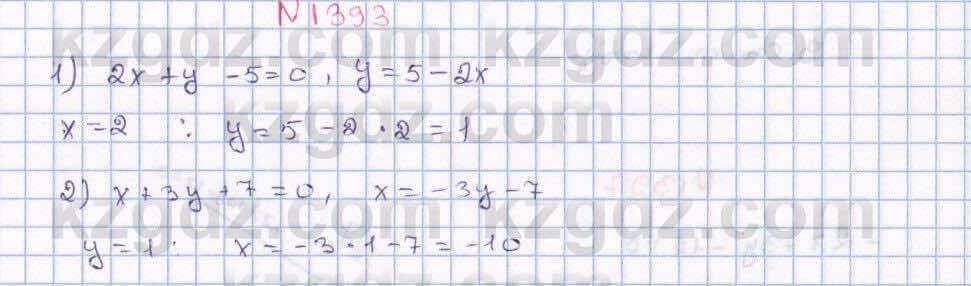 N1393
1) 2x + y - 5 = 0, y = 5 - 2x
x = 2 : y = 5 - 2 · 2 = 1
2) x + 3y + 7 = 0, x = -3y - 7
y = 1 : x = -3 · 1 - 7 = -10
kzgdz.com kzgdz.com
kzgdz.com
kzgdz.com kzgdz.com
kzgdz.com